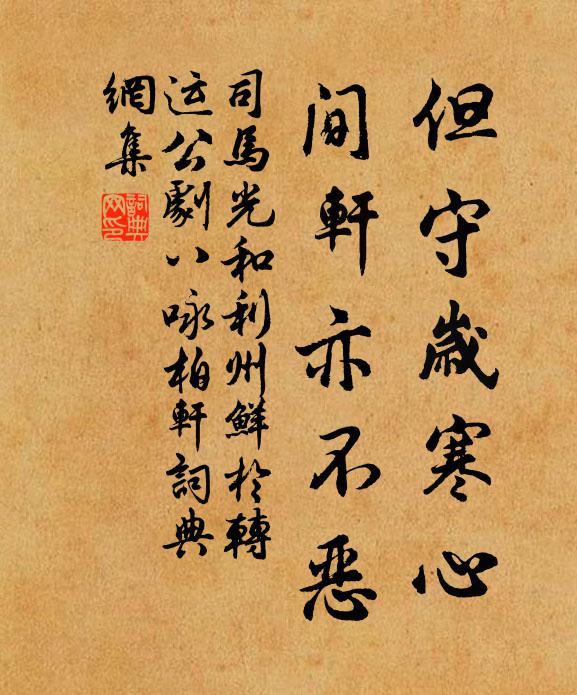 但守歲寒心
閒軒亦不惡
司馬光和利州鮮於轉
运公劇八咏柏軒詞典
網集
詞典
网印